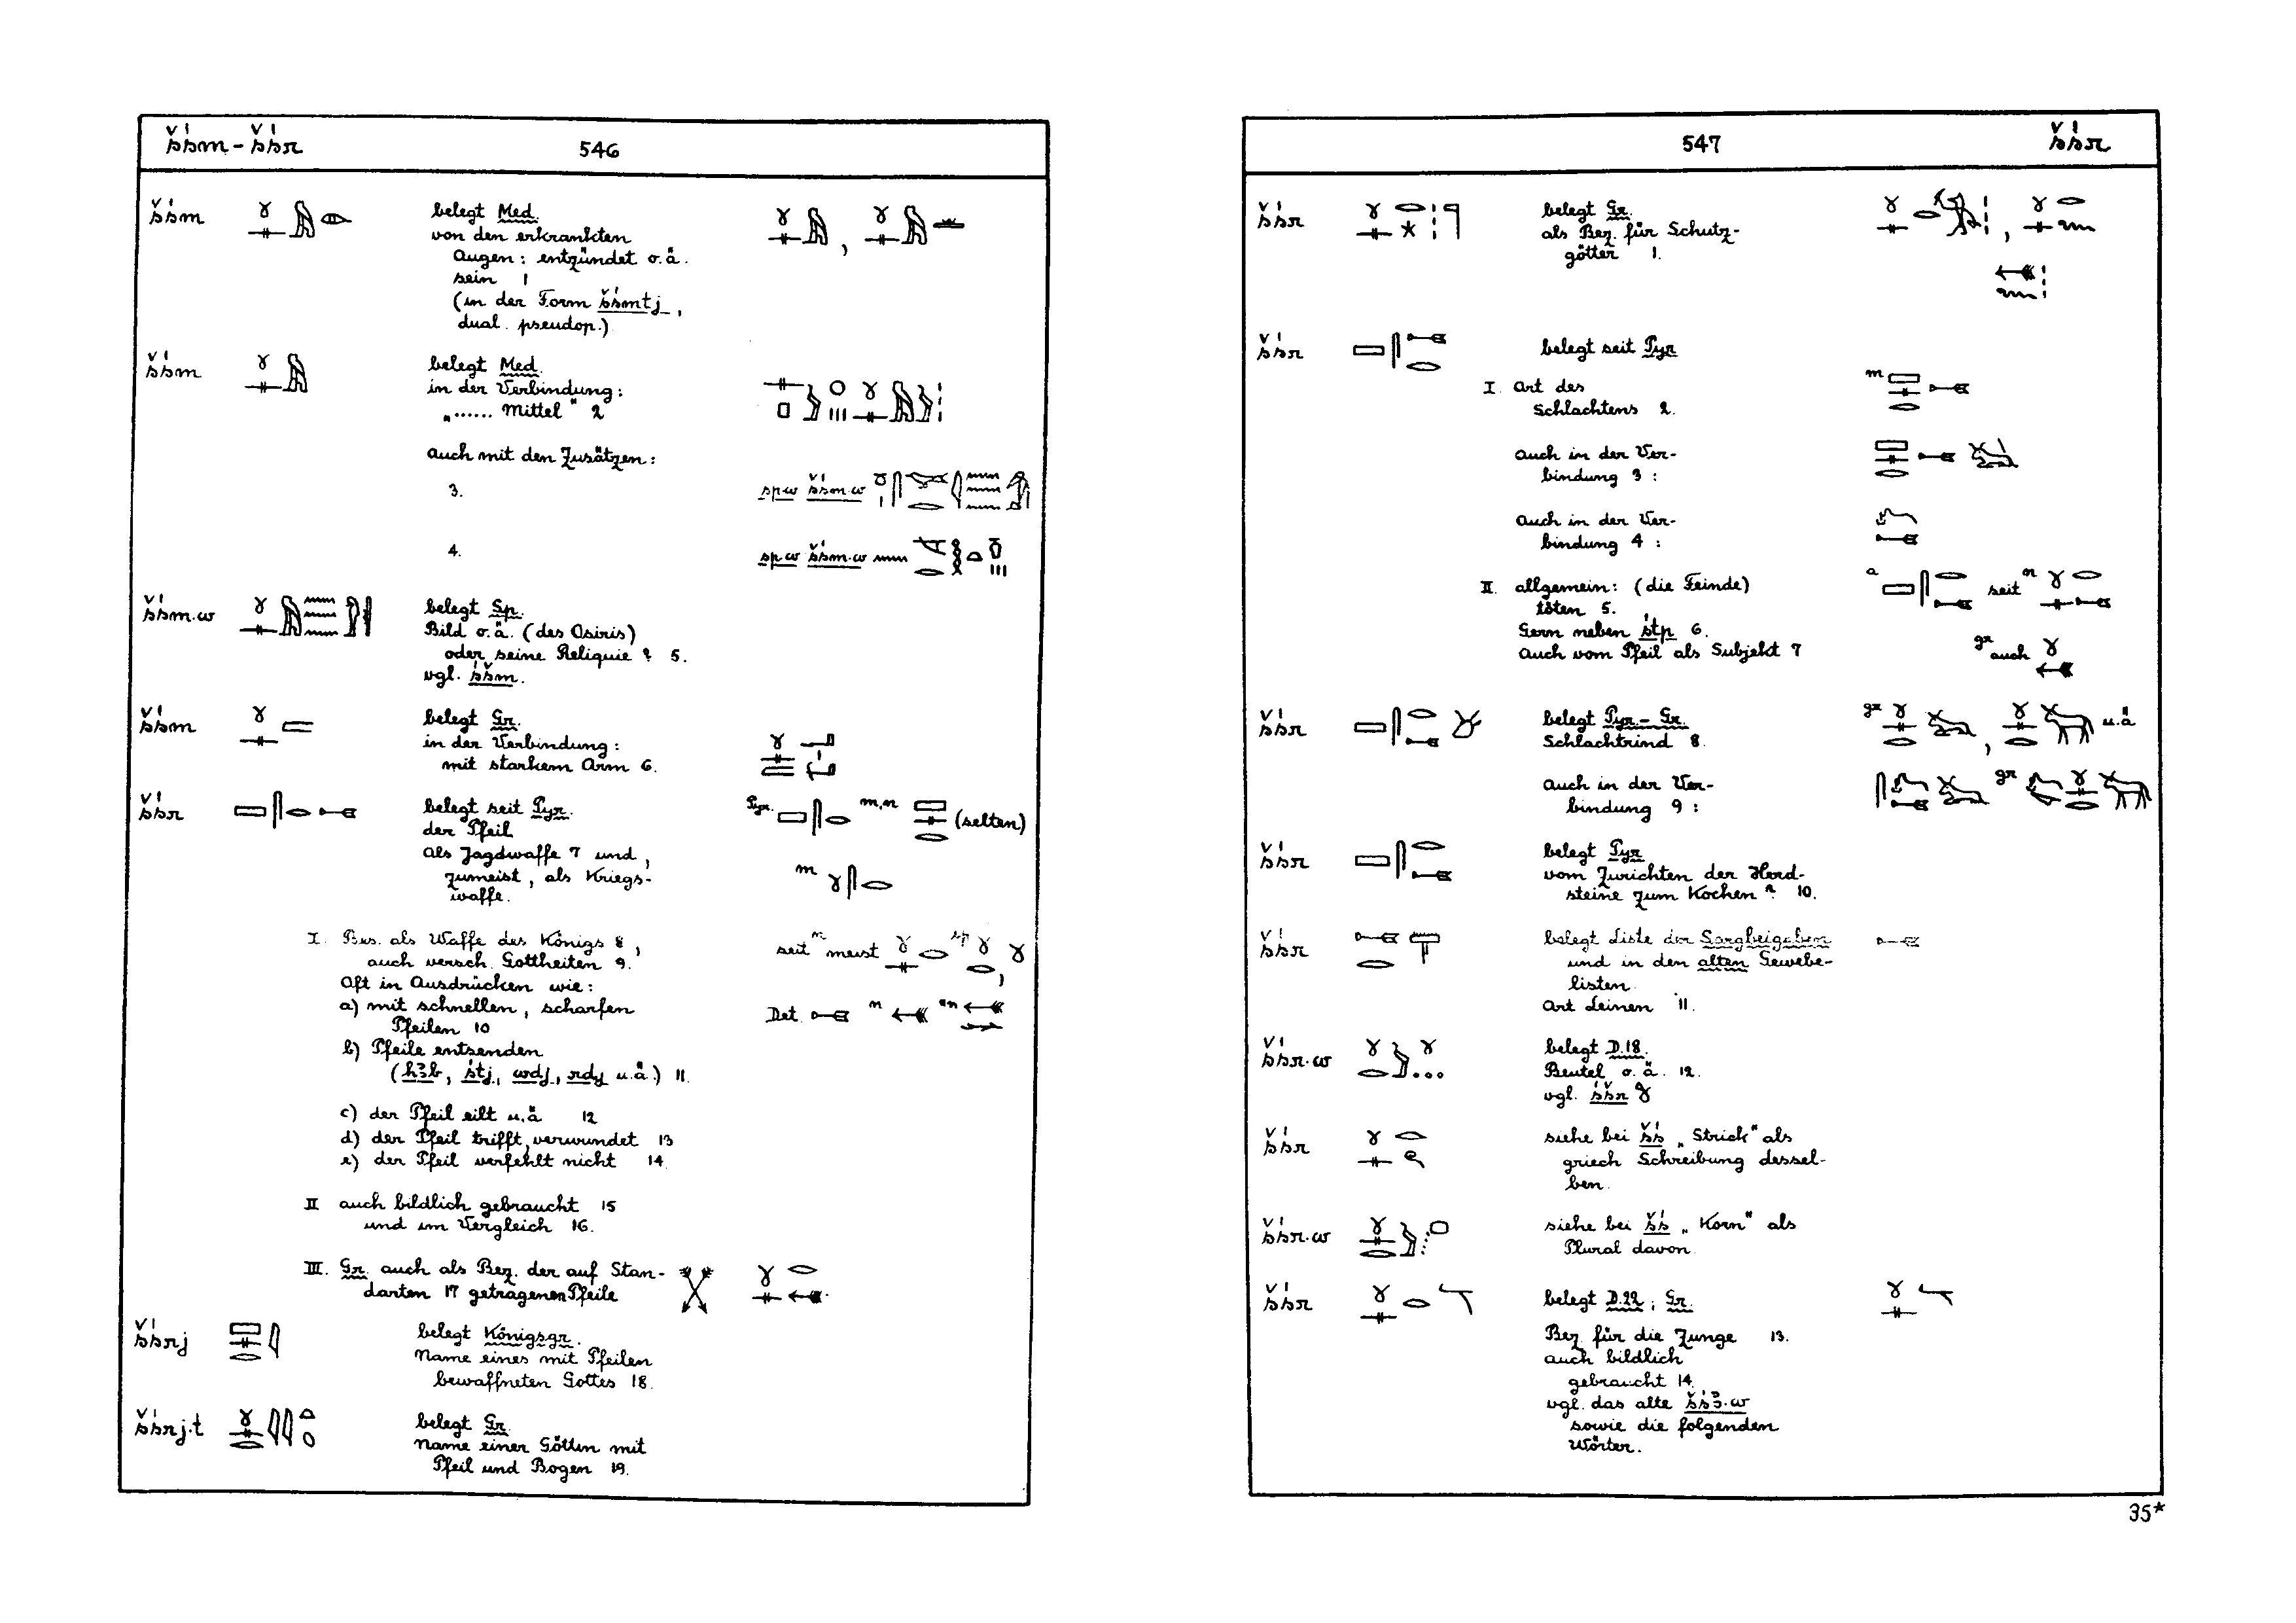 šśm - šśr 546
šśm belegt Med.
von den erkrankten
Augen: entzündet o.ä.
sein 1
(in der Form šśmtj,
dual. pseudop.)
šśm belegt Med.
in der Verbindung:
„...... Mittel" 2
auch mit den Zusätzen:
3. spw šśm.w
4. spw šśm.w
šśm.w belegt Sp.
Bild o.ä. (des Osiris)
oder seine Reliquie? 5.
vgl. śšm.
šśm belegt Gr.
in der Verbindung:
mit starkem Arm 6.
šśr belegt seit Pyr. Pyr. m.n (selten)
der Pfeil
als Jagdwaffe 7 und, m
zumeist, als Kriegs-
waffe.
I. Bes. als Waffe des Königs 8, seit n meist sp
auch versch. Gottheiten 9.
Oft in Ausdrücken wie:
a) mit schnellen, scharfen Det. n
Pfeilen 10
b) Pfeile entsenden
(hꜣb, śtj, wdj, rdj u.ä.) 11.
c) der Pfeil eilt u.ä 12
d) der Pfeil trifft, verwundet 13
e) der Pfeil verfehlt nicht 14.
II auch bildlich gebraucht 15
und im Vergleich 16.
III. Gr. auch als Bez. der auf Stan-
darten 17 getragenen Pfeile
šśrj belegt Königsgr.
Name eines mit Pfeilen
bewaffneten Gottes 18.
šśrj.t belegt Gr.
Name einer Göttin mit
Pfeil und Bogen 19.
547 šśr
šśr belegt Gr.
als Bez. für Schutz-
götter 1.
šśr belegt seit Pyr
I. Art des m
Schlachtens 2.
auch in der Ver-
bindung 3 :
auch in der Ver-
bindung 4 :
II. allgemein: (die Feinde) a seit n
töten 5.
Gern neben śtp 6.
Auch vom Pfeil als Subjekt 7 gr auch
šśr belegt Pyr. - Gr. gr u.ä
Schlachtrind 8.
auch in der Ver- gr
bindung 9 :
šśr belegt Pyr
vom Zurichten der Herd-
steine zum Kochen? 10.
šśr belegt Liste der Sargbeigaben
und in den alten Gewebe-
listen.
Art Leinen 11.
šśr.w belegt D.18.
Beutel o.ä. 12.
vgl. śšr
šśr siehe bei šś „Strick" als
griech Schreibung dessel-
ben.
šśr.w siehe bei šś „Korn" als
Plural davon.
šśr belegt D.22; Gr.
Bez. für die Zunge 13.
auch bildlich
gebraucht 14.
vgl. das alte šśꜣ.w
sowie die folgenden
Wörter.
35*